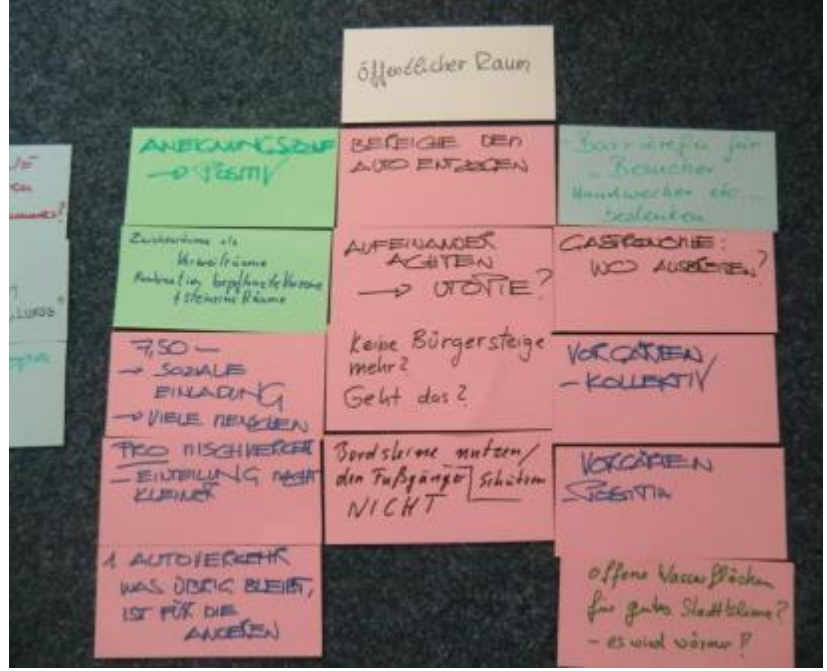 öffentlicher Raum
ANEIGNUNGSZONE
→ POSITIV
Zwischenräume als
Verweilräume
Kombination bepflanzte Vorzone
+ steinerne Räume
7,50 —
→ SOZIALE
EINLADUNG
→ VIELE MENSCHEN
PRO MISCHVERKEHR
— EINTEILUNG MACHT
KLEINER
1 AUTOVERKEHR
WAS ÜBRIG BLEIBT,
IST FÜR DIE
ANDEREN
BEREICHE DEM
AUTO ENTZOGEN
AUFEINANDER
ACHTEN
→ UTOPIE?
Keine Bürgersteige
mehr?
Geht das?
Bordsteine nutzen/
den Fußgänger schützen
NICHT
Barrierefrei für
Besucher
Handwerker etc...
bedenken
GASTRONOMIE:
WO AUSBREITEN?
VORGÄRTEN
— KOLLEKTIV
VORGÄRTEN
POSITIV
offene Wasserflächen
für gutes Stadtklima?
– es wird wärmer?